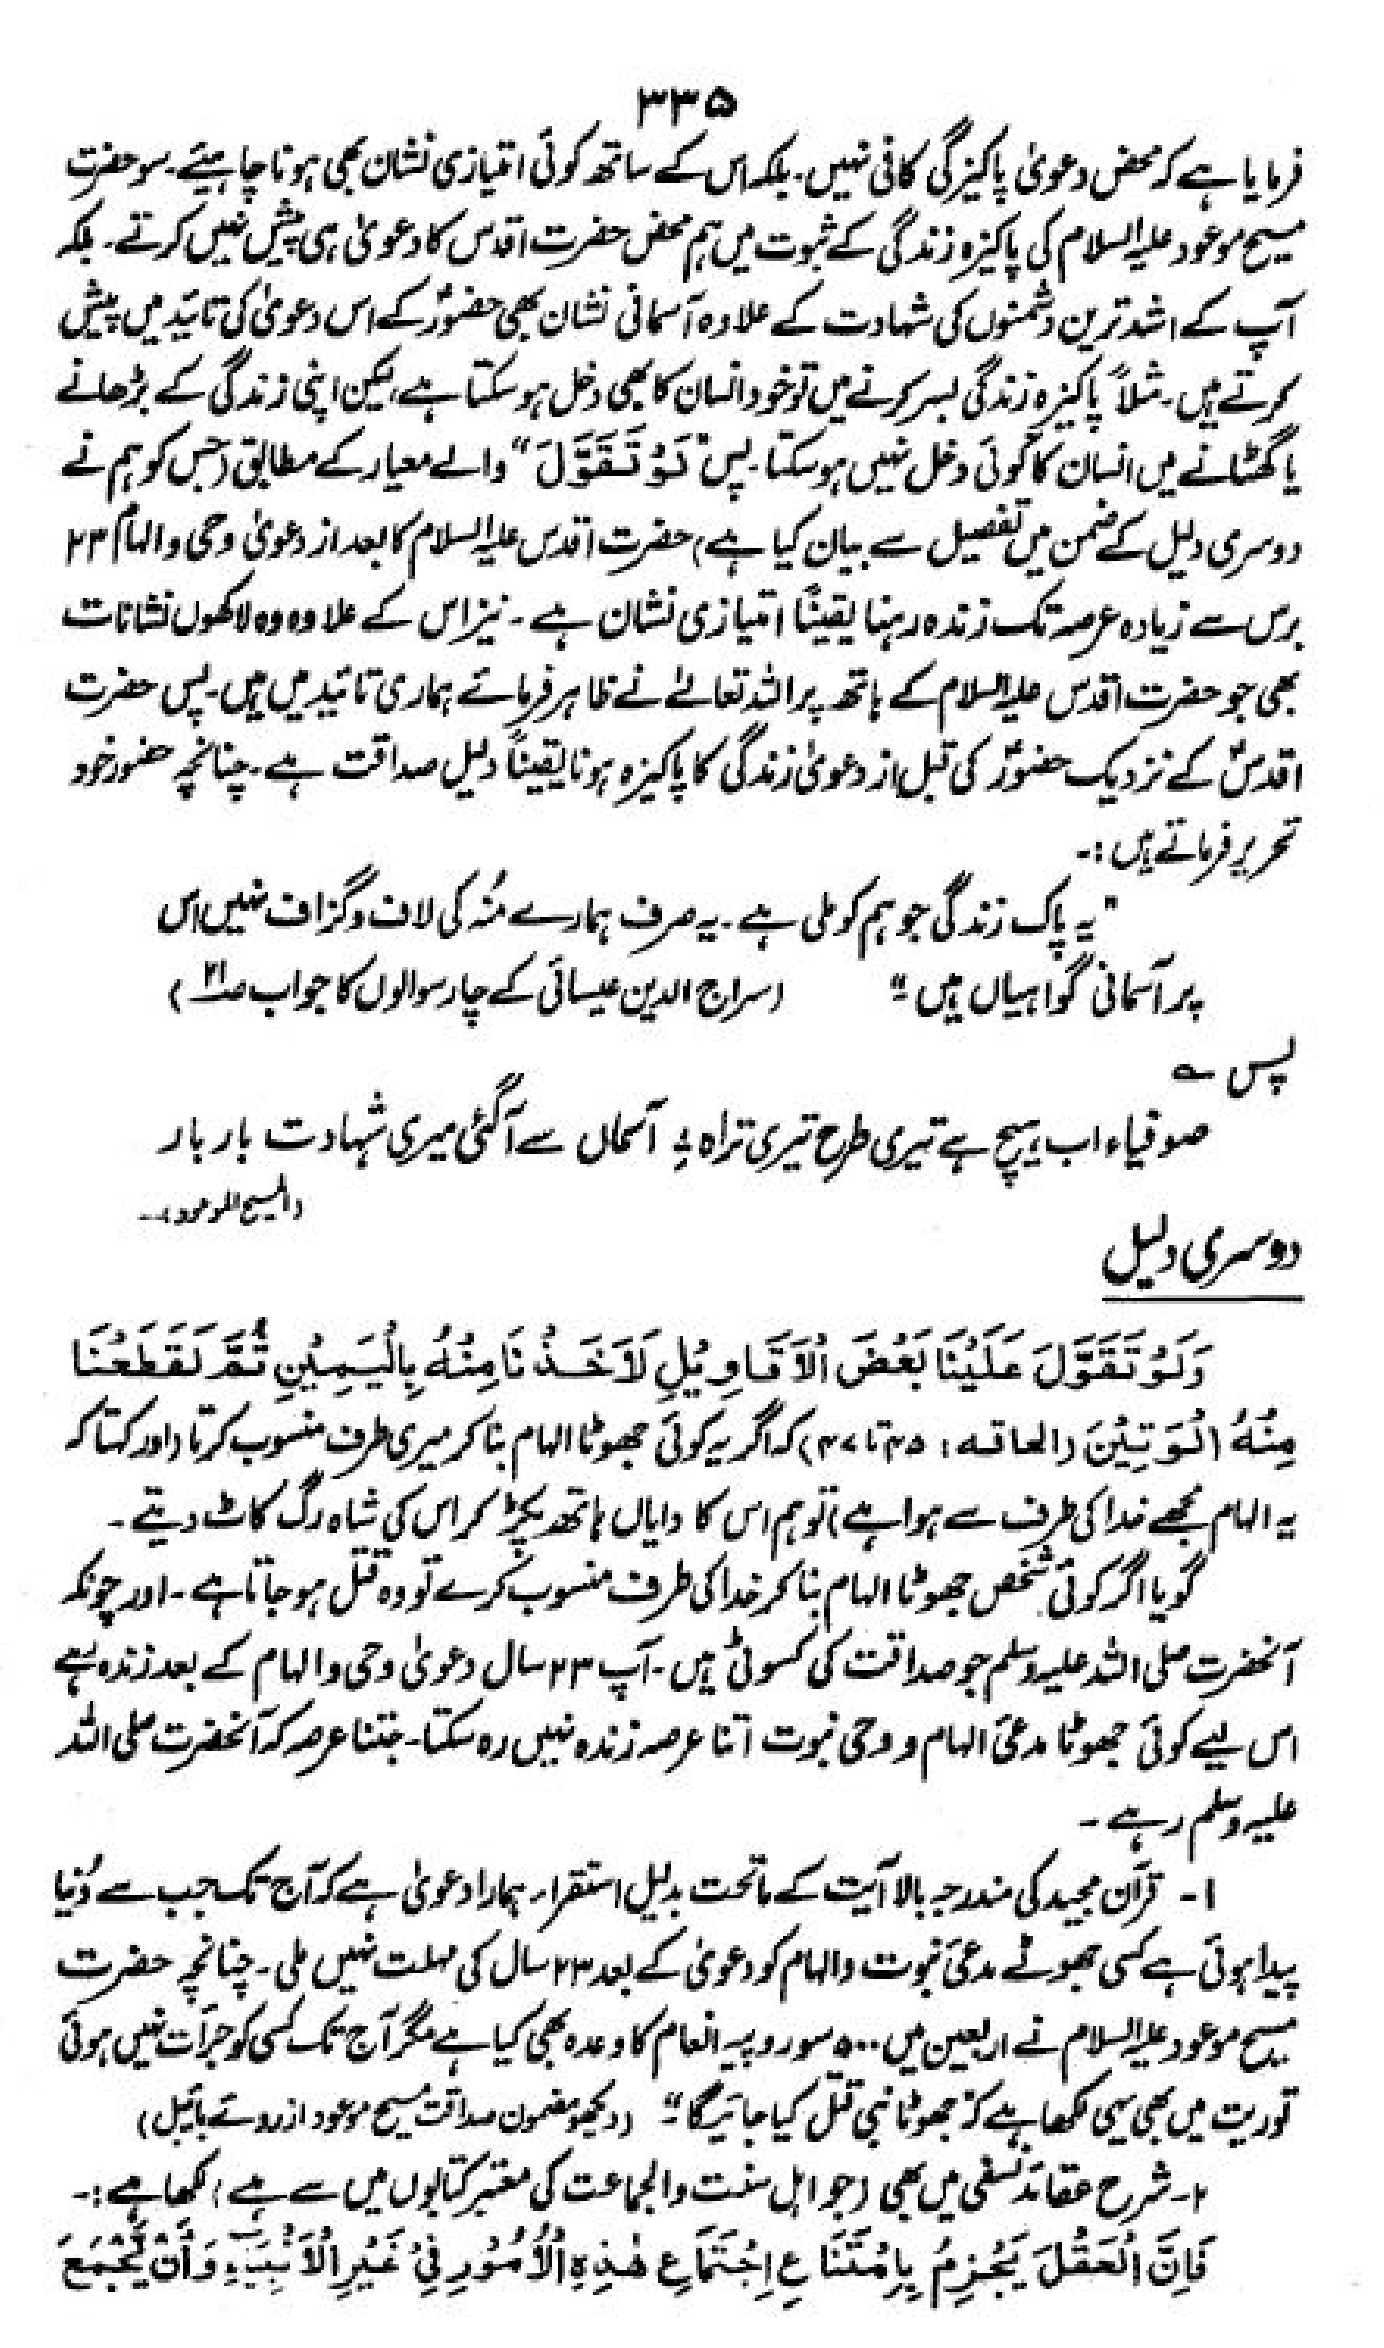 ۳۳۵
فرمایا ہے کہ محض دعویٰ پاکیزگی کافی نہیں۔ بلکہ اس کے ساتھ کوئی امتیازی نشان بھی ہونا چاہیئے۔ سو حضرت
مسیح موعود علیہ السلام کی پاکیزہ زندگی کے ثبوت میں ہم محض حضرت اقدس کا دعویٰ ہی پیش نہیں کرتے۔ بلکہ
آپ کے اشد ترین دشمنوں کی شہادت کے علاوہ آسمانی نشان بھی حضورؑ کے اس دعویٰ کی تائید میں پیش
کرتے ہیں۔ مثلاً پاکیزہ زندگی بسر کرنے میں تو خود انسان کا بھی دخل ہو سکتا ہے، لیکن اپنی زندگی کے بڑھانے
یا گھٹانے میں انسان کا کوئی دخل نہیں ہو سکتا۔ پس "لَوْ تَقَوَّلَ" والے معیار کے مطابق (جس کو ہم نے
دوسری دلیل کے ضمن میں تفصیل سے بیان کیا ہے) حضرت اقدس علیہ السلام کا بعد از دعویٰ وحی و الہام ۲۳
برس سے زیادہ عرصہ تک زندہ رہنا یقیناً امتیازی نشان ہے۔ نیز اس کے علاوہ وہ لاکھوں نشانات
بھی جو حضرت اقدس علیہ السلام کے ہاتھ پر اللہ تعالےٰ نے ظاہر فرمائے ہماری تائید میں ہیں۔ پس حضرت
اقدسؑ کے نزدیک حضورؑ کی قبل از دعویٰ زندگی کا پاکیزہ ہونا یقیناً دلیل صداقت ہے۔ چنانچہ حضور خود
تحریر فرماتے ہیں:۔
"یہ پاک زندگی جو ہم کو ملی ہے۔ یہ صرف ہمارے مُنہ کی لاف و گزاف نہیں اس
پر آسمانی گواہیاں ہیں۔" (سراج الدین عیسائی کے چار سوالوں کا جواب صـ۲۱)
پس ؎
صوفیاء اب ہیچ ہے تیری طرح تیری تراہ ؛ آسماں سے آگئی میری شہادت بار بار
(المسیح الموعود)۔
دوسری دلیل
وَلَوْ تَقَوَّلَ عَلَيْنَا بَعْضَ الْاَقَاوِيْلِ لَاَخَذْنَا مِنْهُ بِالْيَمِيْنِ ثُمَّ لَقَطَعْنَا
مِنْهُ الْوَتِيْنَ (الحاقہ: ۴۵ تا ۴۷) کہ اگر یہ کوئی جھوٹا الہام بنا کر میری طرف منسوب کرتا (اور کہتا کہ
یہ الہام مجھے خدا کی طرف سے ہوا ہے) تو ہم اس کا دایاں ہاتھ پکڑ کر اس کی شاہ رگ کاٹ دیتے۔
گویا اگر کوئی شخص جھوٹا الہام بنا کر خدا کی طرف منسوب کرے تو وہ قتل ہو جاتا ہے۔ اور چونکہ
آنحضرت صلی اللہ علیہ وسلم جو صداقت کی کسوٹی ہیں۔ آپ ۲۳ سال دعویٰ وحی و الہام کے بعد زندہ رہے
اس لیے کوئی جھوٹا مدعی الہام و وحی نبوت اتنا عرصہ زندہ نہیں رہ سکتا۔ جتنا عرصہ کہ آنحضرت صلی اللہ
علیہ وسلم رہے۔
۱۔ قرآن مجید کی مندرجہ بالا آیت کے ماتحت بدلیل استقرار ہمارا دعویٰ ہے کہ آج تک جب سے دُنیا
پیدا ہوئی ہے کسی جھوٹے مدعی نبوت و الہام کو دعویٰ کے بعد ۲۳ سال کی مہلت نہیں ملی۔ چنانچہ حضرت
مسیح موعود علیہ السلام نے اربعین میں ۵۰۰ سو روپیہ انعام کا وعدہ بھی کیا ہے مگر آج تک کسی کو جرأت نہیں ہوئی
توریت میں بھی یہی لکھا ہے کہ "جھوٹا نبی قتل کیا جائیگا۔" (دیکھو مضمون صداقت مسیح موعود از روئے بائیبل)
۲۔ شرح عقائد نسفی میں بھی (جو اہل سنت والجماعت کی معتبر کتابوں میں سے ہے) لکھا ہے:۔
فَاِنَّ الْعَقْلَ يَجْزِمُ بِامْتِنَاعِ اِجْتِمَاعِ هٰذِهِ الْاُمُوْرِ فِيْ غَيْرِ الْاَنْبِيَآءِ وَاَنْ يَّجْمَعَ